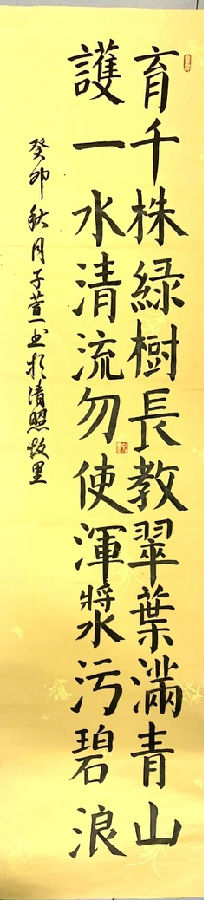 育千株綠樹長教翠葉滿青山
護一水清流勿使渾漿污碧浪
癸卯秋月子萱书於清照故里